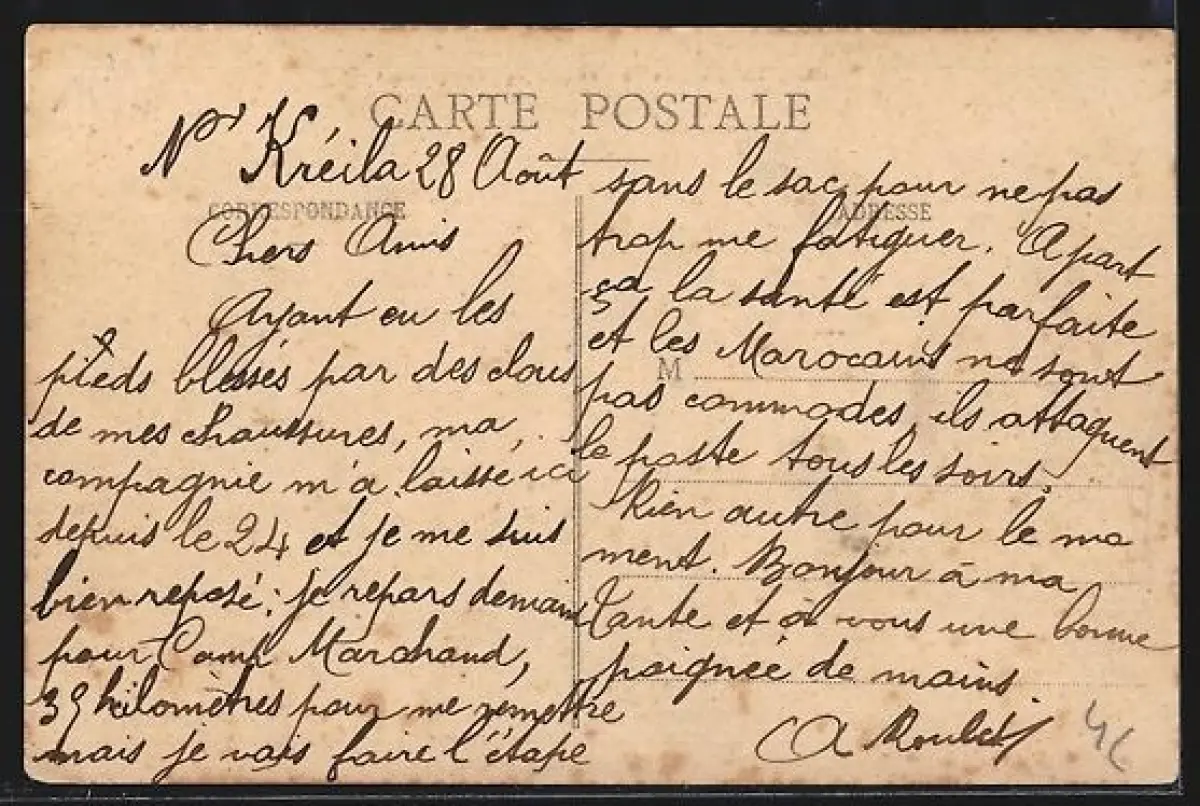 CARTE POSTALE
Kréila 28 Août
CORRESPONDANCE
Chers Amis
Ayant eu les
pieds blessés par des clous
de mes chaussures, ma
compagnie m'a laissé ici
depuis le 24 et je me suis
bien reposé; je repars demain
pour Camp Marchand,
39 kilomètres pour me remettre
mais je vais faire l'étape
sans le sac, pour ne pas
ADRESSE
trop me fatiguer. Apart
ça la santé est parfaite
et les Marocains ne sont
M
pas commodes, ils attaquent
le poste tous les soirs.
Rien autre pour le mo
ment. Bonjour à ma
Tante et à vous une bonne
poignée de mains.
A